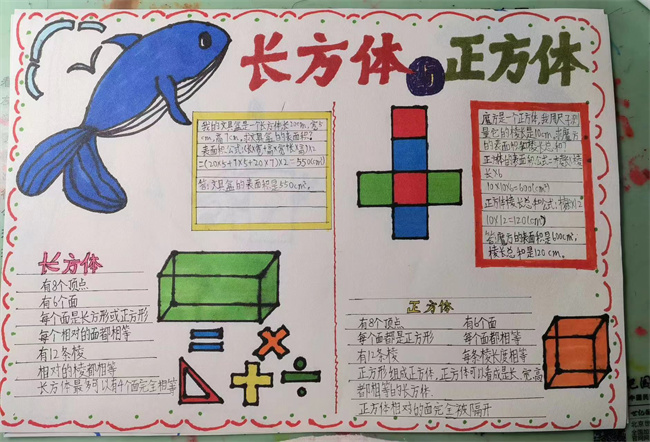 长方体与正方体
我的文具盒是一个长方体长20cm,宽5
cm,高7cm,求文具盒的表面积?
表面积公式:(长×宽+高×宽+长×高)×2
=(20×5+7×5+20×7)×2=550(cm²)
答:文具盒的表面积是550cm²。
魔方是一个正方体,我用尺子测
量它的棱长是10cm,求魔方
的表面积和棱长总和?
正方体的表面积公式=棱长×棱
长×6
10×10×6=600(cm²)
正方体棱长总和公式:棱长×12
10×12=120(cm)
答:魔方的表面积是600cm²,
棱长总和是120cm。
长方体
有8个顶点
有6个面
每个面是长方形或正方形
每个相对的面都相等
有12条棱
相对的棱都相等
长方体最多可以有4个面完全相等
正方体
有8个顶点 有6个面
每个面都是正方形 每个面都相等
有12条棱 每条棱长度相等
正方形组成正方体,正方体可以看成是长、宽、高
都相等的长方体.
正方体相对的面完全被隔开